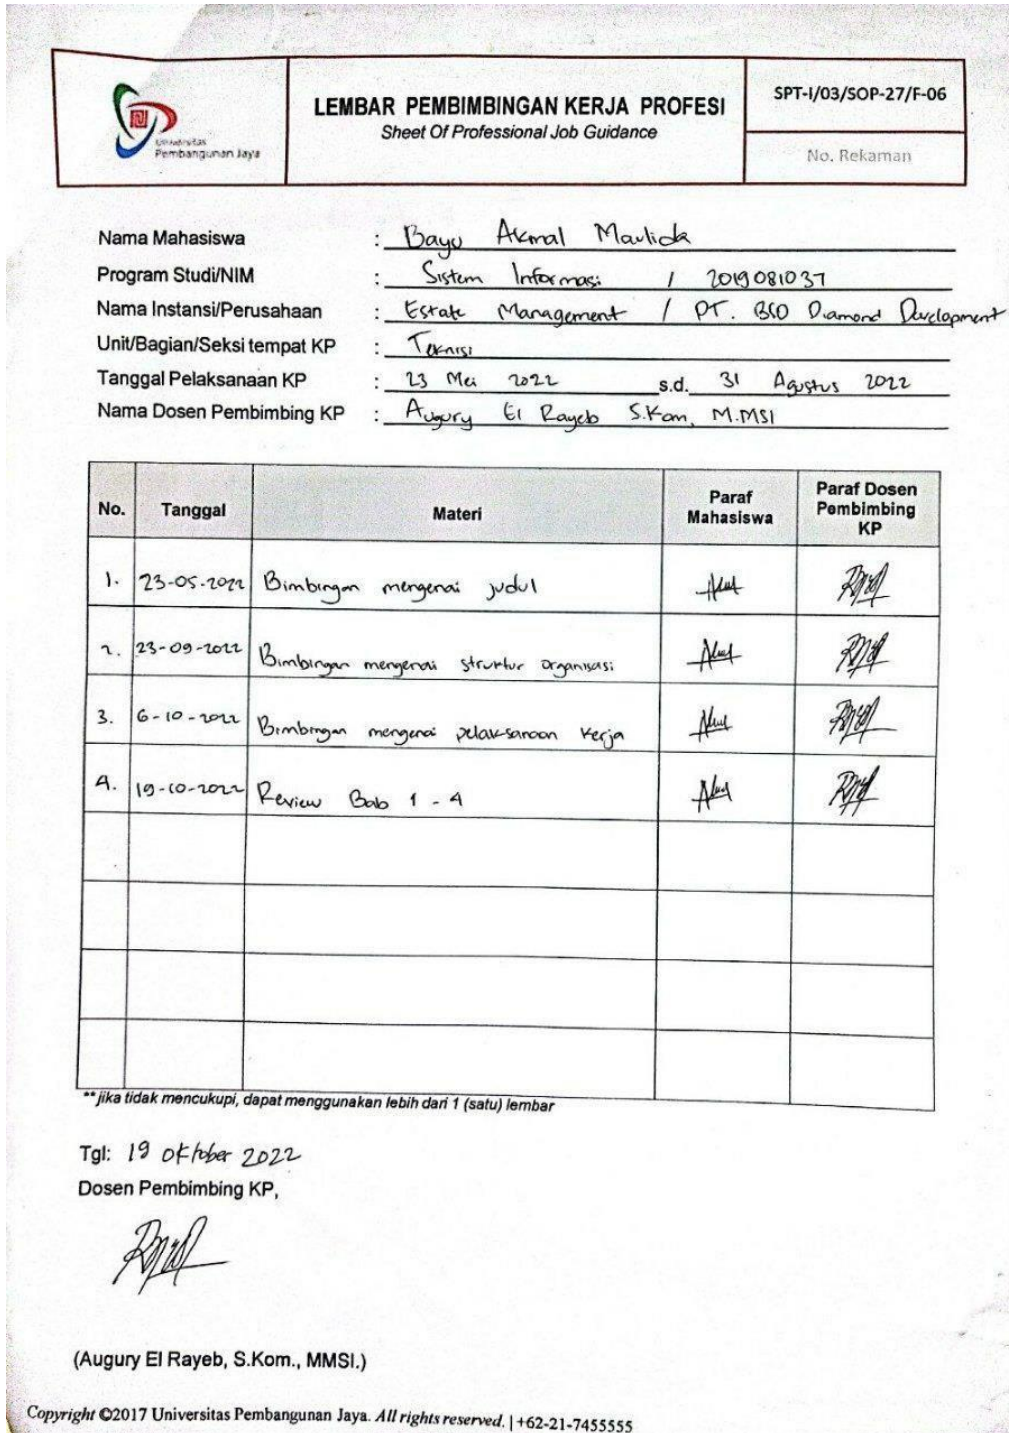 Universitas
Pembangunan Jaya
LEMBAR PEMBIMBINGAN KERJA PROFESI
Sheet Of Professional Job Guidance
SPT-I/03/SOP-27/F-06
No. Rekaman
Nama Mahasiswa : Bayu Akmal Maulida
Program Studi/NIM : Sistem Informasi / 2019081037
Nama Instansi/Perusahaan : Estate Management / PT. BSD Diamond Development
Unit/Bagian/Seksi tempat KP : Teknisi
Tanggal Pelaksanaan KP : 23 Mei 2022 s.d. 31 Agustus 2022
Nama Dosen Pembimbing KP : Augury El Rayeb S.Kom, M.MSI
No. Tanggal Materi Paraf Mahasiswa Paraf Dosen Pembimbing KP
1. 23-05-2022 Bimbingan mengenai judul
2. 23-09-2022 Bimbingan mengenai struktur organisasi
3. 6-10-2022 Bimbingan mengenai pelaksanaan kerja
4. 19-10-2022 Review Bab 1 - 4
**jika tidak mencukupi, dapat menggunakan lebih dari 1 (satu) lembar
Tgl: 19 Oktober 2022
Dosen Pembimbing KP,
(Augury El Rayeb, S.Kom., MMSI.)
Copyright ©2017 Universitas Pembangunan Jaya. All rights reserved. | +62-21-7455555